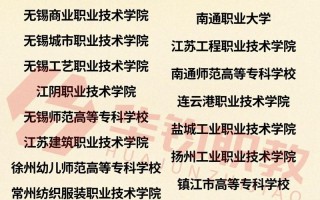 无锡商业职业技术学院
无锡城市职业技术学院
无锡工艺职业技术学院
江阴职业技术学院
无锡师范高等专科学校
江苏建筑职业技术学院
徐州幼儿师范高等专科学校
常州纺织服装职业技术学院
南通职业大学
江苏工程职业技术学院
南通师范高等专科学校
连云港职业技术学院
盐城工业职业技术学院
扬州工业职业技术学院
镇江市高等专科学校